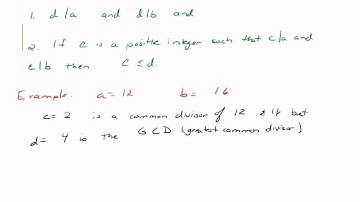 1. d/a and d/b and
2. If c is a positive integer such that c/a and
c/b then c ≤ d.
Example: a=12 b=16
c=2 is a common divisor of 12 & 16 but
d= 4 is the GCD (greatest common divisor)